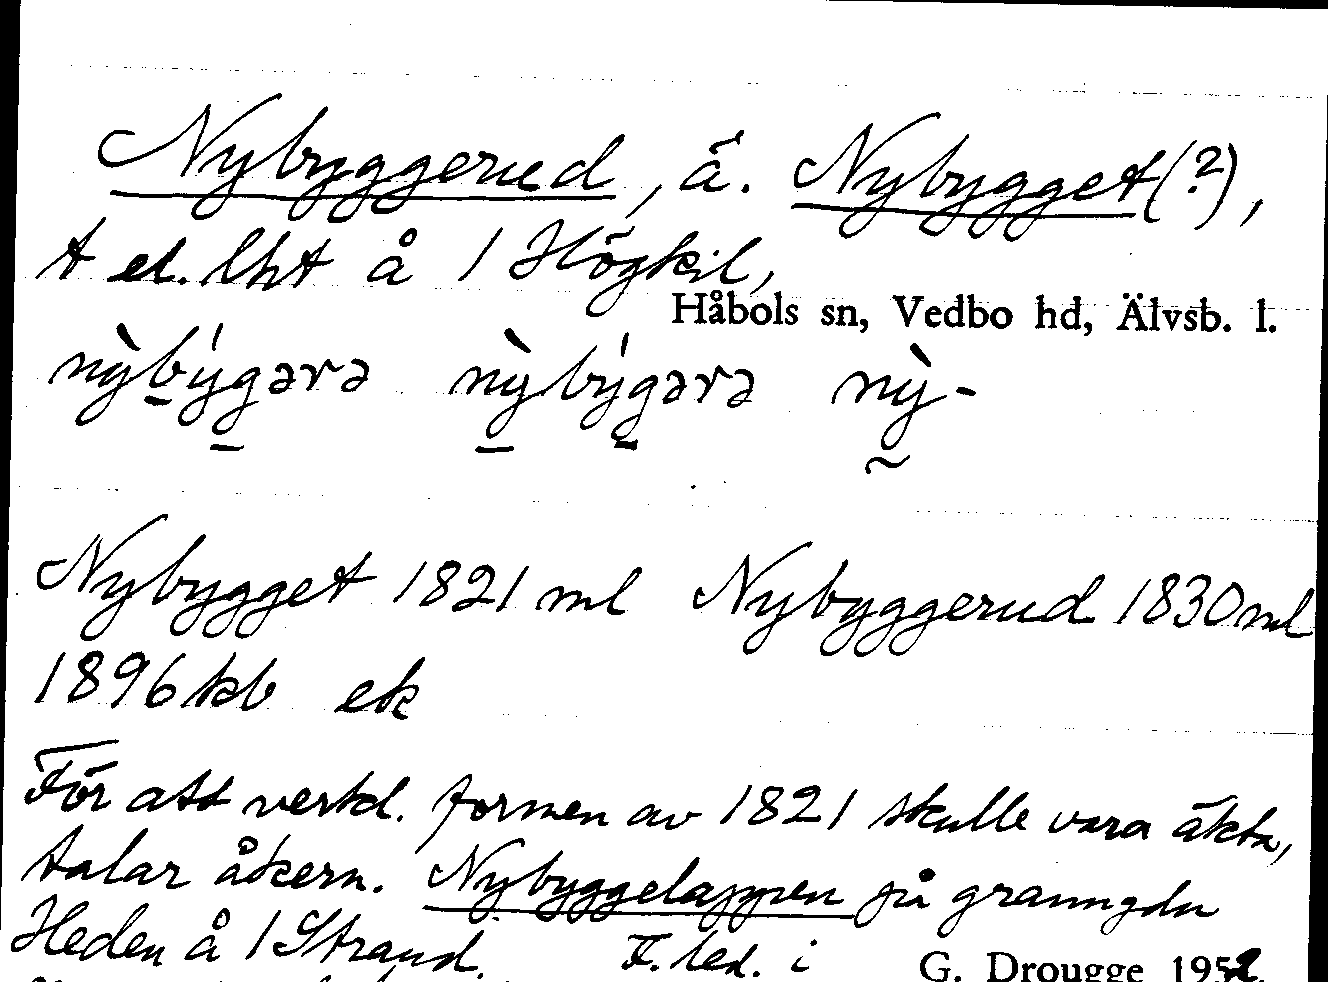 Nybyggerud, ä. Nybygget(?),
t el. lht å 1 Högkil,
Håbols sn, Vedbo hd, Älvsb. l.
nỳbýgərə nỳbýgərə nỳ-
Nybygget 1821 ml Nybyggerud 1830 ml
1896 kb ek
För att verkl. formen av 1821 skulle vara äkta,
talar åkern. Nybyggelappen på granngdn
Heden å 1 Strand. F. led. i
G. Drougge 1952.